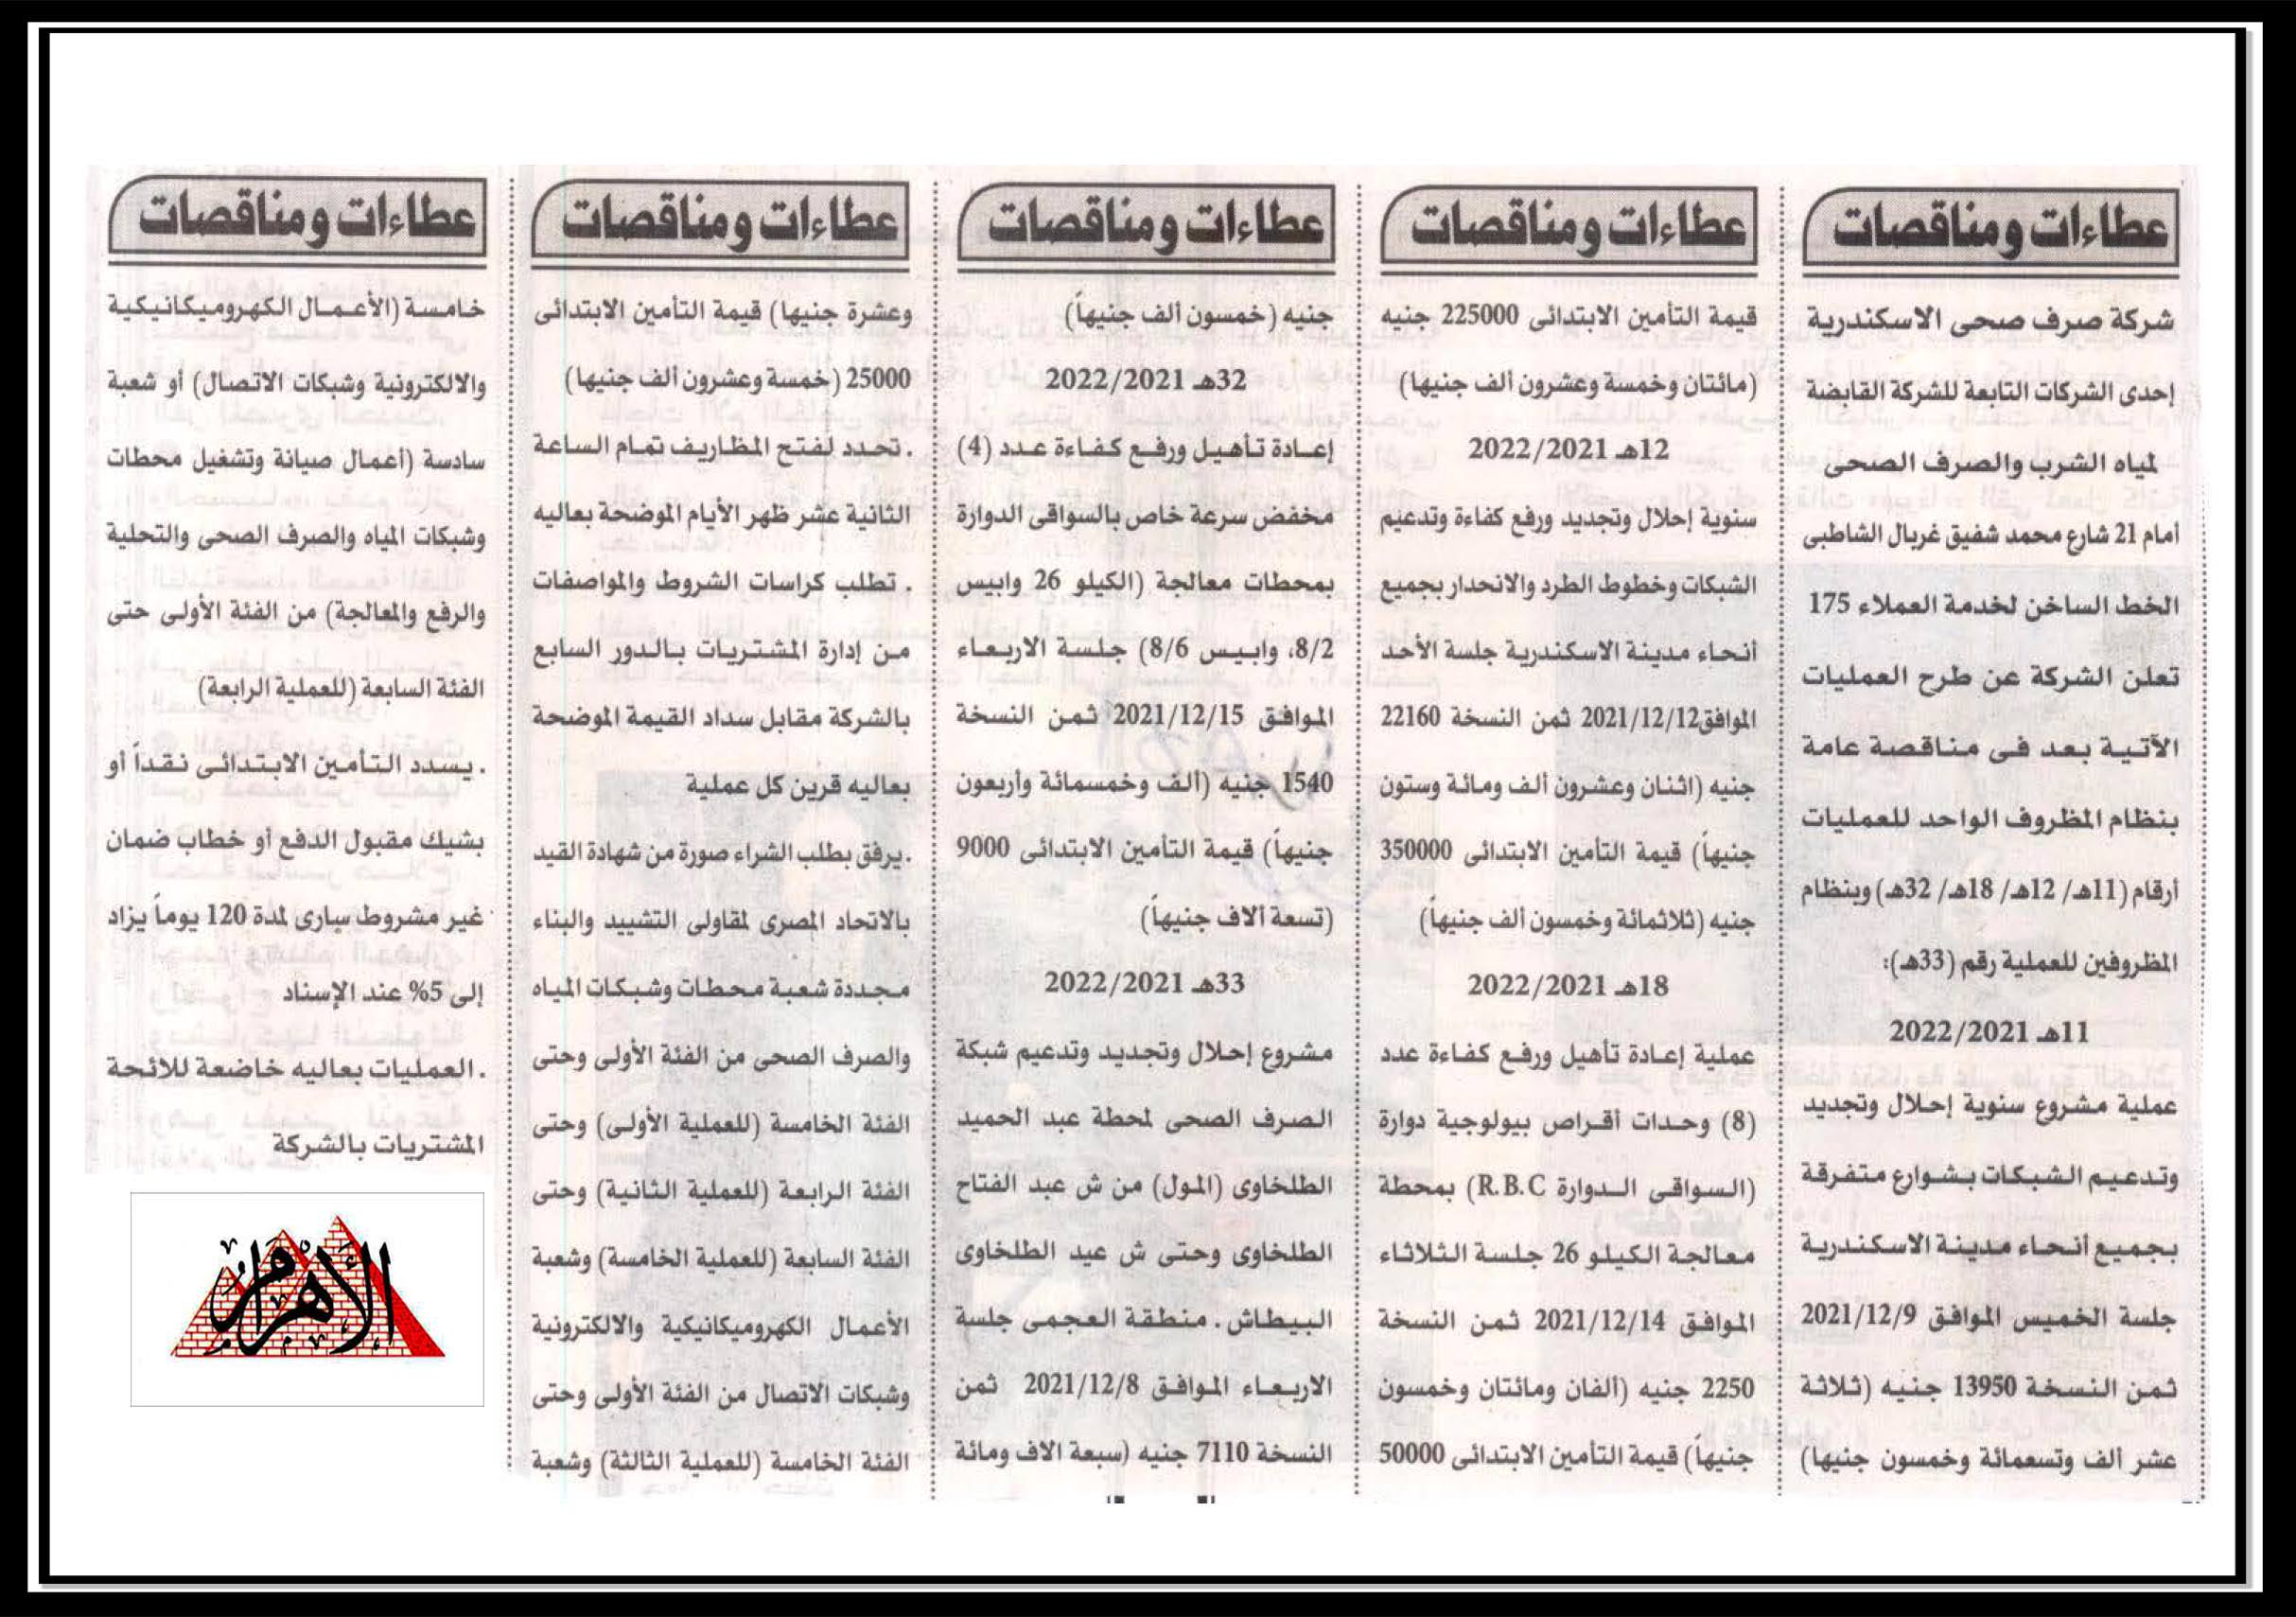 عطاءات ومناقصات
شركة صرف صحى الاسكندرية
إحدى الشركات التابعة للشركة القابضة
لمياه الشرب والصرف الصحى
أمام 21 شارع محمد شفيق غربال الشاطبى
الخط الساخن لخدمة العملاء 175
تعلن الشركة عن طرح العمليات
الآتية بعد فى مناقصة عامة
بنظام المظروف الواحد للعمليات
أرقام (11هـ/ 12هـ/ 18هـ/ 32هـ) وبنظام
المظروفين للعملية رقم (33هـ):
11هـ 2022/2021
عملية مشروع سنوية إحلال وتجديد
وتدعيم الشبكات بشوارع متفرقة
بجميع أنحاء مدينة الاسكندرية
جلسة الخميس الموافق 2021/12/9
ثمن النسخة 13950 جنيه (ثلاثة
عشر ألف وتسعمائة وخمسون جنيها)
عطاءات ومناقصات
قيمة التأمين الابتدائى 225000 جنيه
(مائتان وخمسة وعشرون ألف جنيها)
12هـ 2022/2021
سنوية إحلال وتجديد ورفع كفاءة وتدعيم
الشبكات وخطوط الطرد والانحدار بجميع
أنحاء مدينة الاسكندرية جلسة الأحد
الموافق2021/12/12 ثمن النسخة 22160
جنيه (اثنان وعشرون ألف ومائة وستون
جنيهاً) قيمة التأمين الابتدائى 350000
جنيه (ثلاثمائة وخمسون ألف جنيهاً)
18هـ 2022/2021
عملية إعادة تأهيل ورفع كفاءة عدد
(8) وحدات أقراص بيولوجية دوارة
(السواقى الدوارة R.B.C) بمحطة
معالجة الكيلو 26 جلسة الثلاثاء
الموافق 2021/12/14 ثمن النسخة
2250 جنيه (ألفان ومائتان وخمسون
جنيهاً) قيمة التأمين الابتدائى 50000
عطاءات ومناقصات
جنيه (خمسون ألف جنيهاً)
32هـ 2022/2021
إعادة تأهيل ورفع كفاءة عدد (4)
مخفض سرعة خاص بالسواقى الدوارة
بمحطات معالجة (الكيلو 26 وابيس
8/2، وابيس 8/6) جلسة الاربعاء
الموافق 2021/12/15 ثمن النسخة
1540 جنيه (ألف وخمسمائة وأربعون
جنيهاً) قيمة التأمين الابتدائى 9000
(تسعة ألاف جنيهاً)
33هـ 2022/2021
مشروع إحلال وتجديد وتدعيم شبكة
الصرف الصحى لمحطة عبد الحميد
الطلخاوى (المول) من ش عبد الفتاح
الطلخاوى وحتى ش عيد الطلخاوى
البيطاش. منطقة العجمى جلسة
الاربعاء الموافق 2021/12/8 ثمن
النسخة 7110 جنيه (سبعة الاف ومائة
عطاءات ومناقصات
وعشرة جنيها) قيمة التأمين الابتدائى
25000 (خمسة وعشرون ألف جنيها)
. تحدد لفتح المظاريف تمام الساعة
الثانية عشر ظهر الأيام الموضحة بعاليه
. تطلب كراسات الشروط والمواصفات
من إدارة المشتريات بالدور السابع
بالشركة مقابل سداد القيمة الموضحة
بعاليه قرين كل عملية
.يرفق بطلب الشراء صورة من شهادة القيد
بالاتحاد المصرى لمقاولى التشييد والبناء
مجددة شعبة محطات وشبكات المياه
والصرف الصحى من الفئة الأولى وحتى
الفئة الخامسة (للعملية الأولى) وحتى
الفئة الرابعة (للعملية الثانية) وحتى
الفئة السابعة (للعملية الخامسة) وشعبة
الأعمال الكهروميكانيكية والالكترونية
وشبكات الاتصال من الفئة الأولى وحتى
الفئة الخامسة (للعملية الثالثة) وشعبة
عطاءات ومناقصات
خامسة (الأعمال الكهروميكانيكية
والالكترونية وشبكات الاتصال) أو شعبة
سادسة (أعمال صيانة وتشغيل محطات
وشبكات المياه والصرف الصحى والتحلية
والرفع والمعالجة) من الفئة الأولى حتى
الفئة السابعة (للعملية الرابعة)
. يسدد التأمين الابتدائى نقداً أو
بشيك مقبول الدفع أو خطاب ضمان
غير مشروط سارى لمدة 120 يوماً يزاد
إلى 5% عند الإسناد
. العمليات بعاليه خاضعة للائحة
المشتريات بالشركة
الأهرام